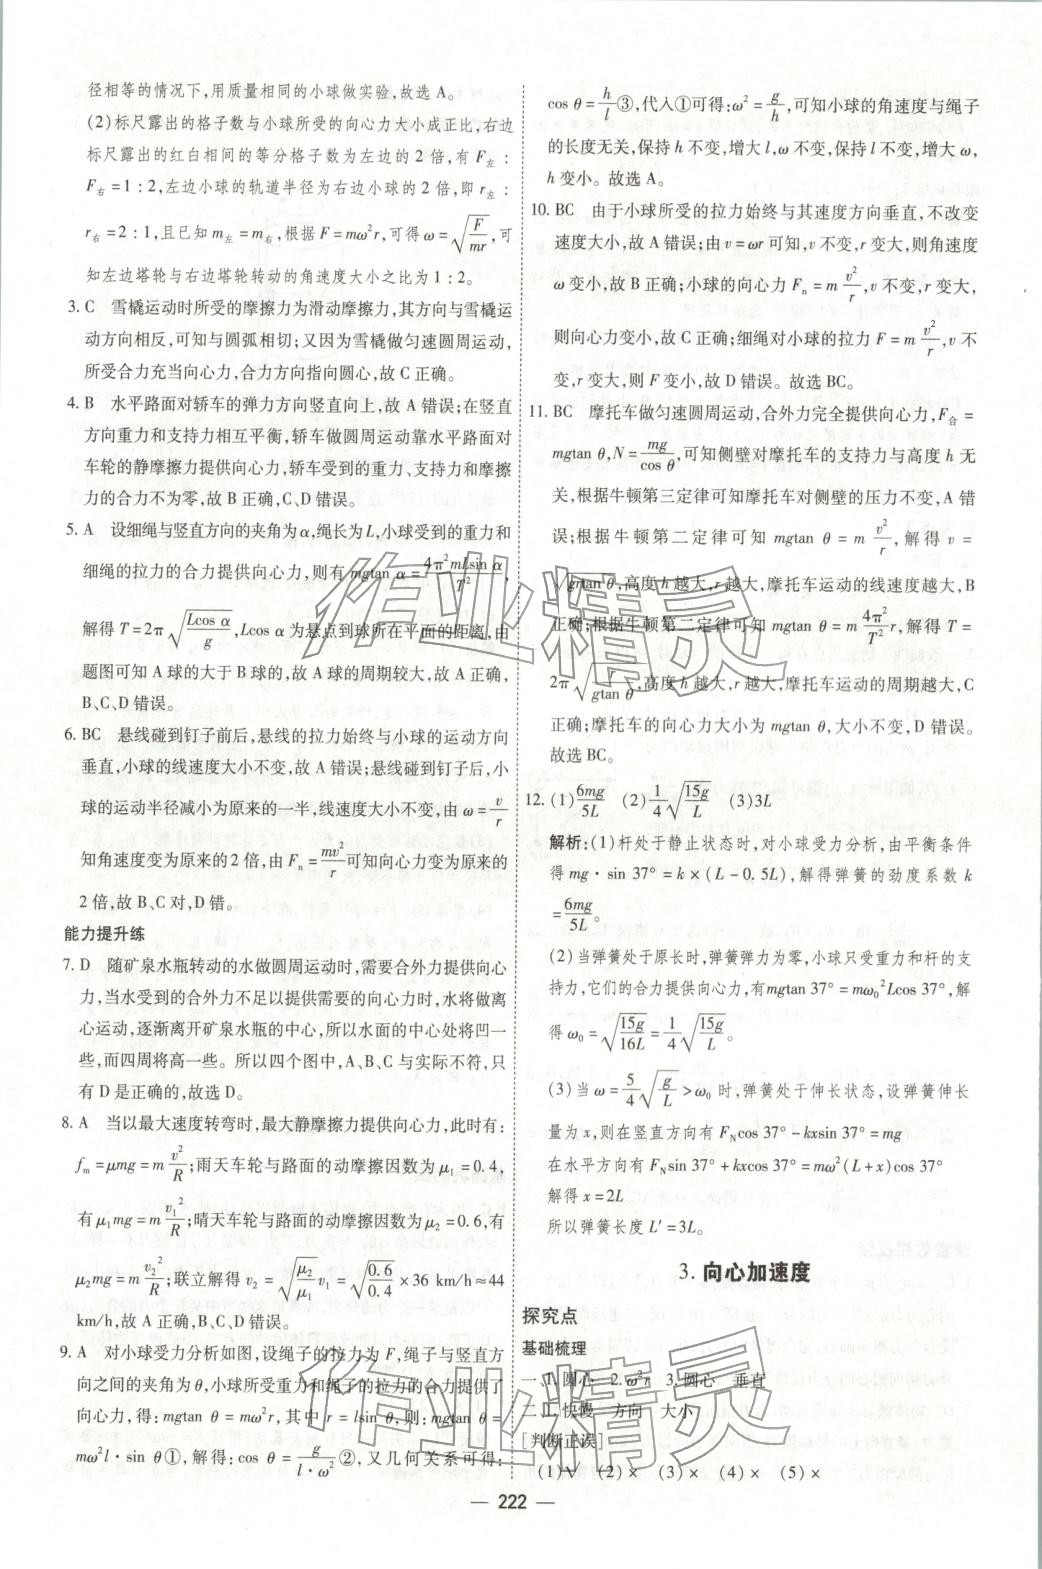 径相等的情况下,用质量相同的小球做实验,故选 A。
(2)标尺露出的格子数与小球所受的向心力大小成正比,右边
标尺露出的红白相间的等分格子数为左边的 2 倍,有 F左 :
F右 = 1 : 2,左边小球的轨道半径为右边小球的 2 倍,即 r左 :
r右 = 2 : 1,且已知 m左 = m右,根据 F = mω²r,可得 ω = √(F/mr),可
知左边塔轮与右边塔轮转动的角速度大小之比为 1 : 2。
3. C 雪橇运动时所受的摩擦力为滑动摩擦力,其方向与雪橇运
动方向相反,可知与圆弧相切;又因为雪橇做匀速圆周运动,
所受合力充当向心力,合力方向指向圆心,故 C 正确。
4. B 水平路面对轿车的弹力方向竖直向上,故 A 错误;在竖直
方向重力和支持力相互平衡,轿车做圆周运动靠水平路面对
车轮的静摩擦力提供向心力,轿车受到的重力、支持力和摩擦
力的合力不为零,故 B 正确,C、D 错误。
5. A 设细绳与竖直方向的夹角为 α,绳长为 L,小球受到的重力和
细绳的拉力的合力提供向心力,则有 mgtan α = 4π²mLsin α/T²,
解得 T = 2π√(Lcos α/g),Lcos α 为悬点到球所在平面的距离,由
题图可知 A 球的大于 B 球的,故 A 球的周期较大,故 A 正确,
B、C、D 错误。
6. BC 悬线碰到钉子前后,悬线的拉力始终与小球的运动方向
垂直,小球的线速度大小不变,故 A 错误;悬线碰到钉子后,小
球的运动半径减小为原来的一半,线速度大小不变,由 ω = v/r
知角速度变为原来的 2 倍,由 Fn = mv²/r 可知向心力变为原来的
2 倍,故 B、C 对,D 错。
能力提升练
7. D 随矿泉水瓶转动的水做圆周运动时,需要合外力提供向心
力,当水受到的合外力不足以提供需要的向心力时,水将做离
心运动,逐渐离开矿泉水瓶的中心,所以水面的中心处将凹一
些,而四周将高一些。所以四个图中,A、B、C 与实际不符,只
有 D 是正确的,故选 D。
8. A 当以最大速度转弯时,最大静摩擦力提供向心力,此时有:
fm = μmg = m v²/R;雨天车轮与路面的动摩擦因数为 μ1 = 0.4,
有 μ1mg = m v1²/R;晴天车轮与路面的动摩擦因数为 μ2 = 0.6,有
μ2mg = m v2²/R;联立解得 v2 = √(μ2/μ1) v1 = √(0.6/0.4) × 36 km/h ≈ 44
km/h,故 A 正确,B、C、D 错误。
9. A 对小球受力分析如图,设绳子的拉力为 F,绳子与竖直方
向之间的夹角为 θ,小球所受重力和绳子的拉力的合力提供了
向心力,得:mgtan θ = mω²r,其中 r = lsin θ,则:mgtan θ =
mω²l·sin θ①,解得:cos θ = g/(l·ω²) ②,又几何关系可得:
cos θ = h/l ③,代入①可得:ω² = g/h,可知小球的角速度与绳子
的长度无关,保持 h 不变,增大 l,ω 不变,保持 l 不变,增大 ω,
h 变小。故选 A。
10. BC 由于小球所受的拉力始终与其速度方向垂直,不改变
速度大小,故 A 错误;由 v = ωr 可知,v 不变,r 变大,则角速度
ω 变小,故 B 正确;小球的向心力 Fn = m v²/r,v 不变,r 变大,
则向心力变小,故 C 正确;细绳对小球的拉力 F = m v²/r,v 不
变,r 变大,则 F 变小,故 D 错误。故选 BC。
11. BC 摩托车做匀速圆周运动,合外力完全提供向心力,F合 =
mgtan θ,N = mg/cos θ,可知侧壁对摩托车的支持力与高度 h 无
关,根据牛顿第三定律可知摩托车对侧壁的压力不变,A 错
误;根据牛顿第二定律可知 mgtan θ = m v²/r,解得 v =
√grtan θ,高度 h 越大,r 越大,摩托车运动的线速度越大,B
正确;根据牛顿第二定律可知 mgtan θ = m 4π²/T² r,解得 T =
2π√(r/gtan θ),高度 h 越大,r 越大,摩托车运动的周期越大,C
正确;摩托车的向心力大小为 mgtan θ,大小不变,D 错误。
故选 BC。
12. (1)6mg/5L (2)1/4 √(15g/L) (3)3L
解析:(1)杆处于静止状态时,对小球受力分析,由平衡条件
得 mg·sin 37° = k×(L-0.5L),解得弹簧的劲度系数 k
= 6mg/5L。
(2)当弹簧处于原长时,弹簧弹力为零,小球只受重力和杆的支
持力,它们的合力提供向心力,有 mgtan 37° = mω0²Lcos 37°,解
得 ω0 = √(15g/16L) = 1/4 √(15g/L)
(3)当 ω = 5/4 √(g/L) > ω0 时,弹簧处于伸长状态,设弹簧伸长
量为 x,则在竖直方向有 FNcos 37° - kxsin 37° = mg
在水平方向有 FNsin 37° + kxcos 37° = mω²(L+x)cos 37°
解得 x = 2L
所以弹簧长度 L′ = 3L。
3. 向心加速度
探究点
基础梳理
一、1. 圆心 2. ω²r 3. 圆心 垂直
二、1. 快慢 方向 大小
[判断正误]
(1)√ (2)× (3)× (4)× (5)×
— 222 —
作业精灵
作业精灵